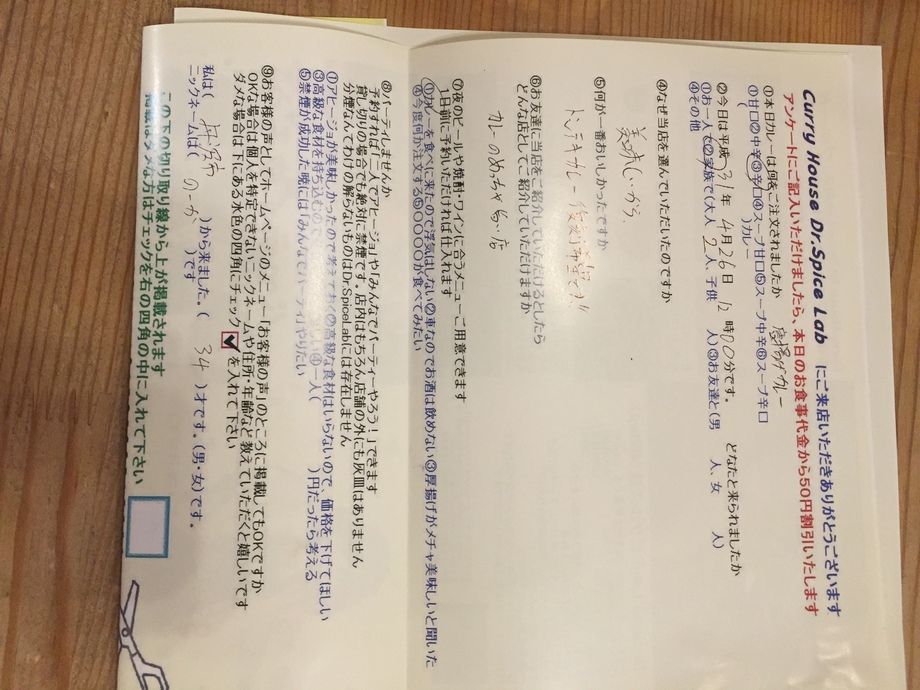 Curry House Dr.Spice Lab にご来店いただきありがとうございます
アンケートにご記入いただけましたら、本日のお食事代金から50円割引いたします
①本日カレーは何をご注文されましたか 唐揚げカレー
①甘口②中辛③辛口④スープ甘口⑤スープ中辛⑥スープ辛口
( )カレー
②今日は平成 31年 4月26日 12時00分です。 どなたと来られましたか
①お一人で②家族で(大人 2人、子供 人)③お友達と(男 人、女 人)
④その他
④なぜ当店を選んでいただいたのですか
美味しいから。
⑤何が一番おいしかったですか
トンテキカレー復刻希望です!!
⑥お友達に当店をご紹介していただけるとしたら
どんな店としてご紹介していただけますか
カレーのめっちゃ旨い店
⑦夜のビールや焼酎・ワインに合うメニューご用意できます
1日前に予約いただければ仕入れます
①カレーを食べに来たので浮気はしない②車なのでお酒は飲めない③厚揚げがメチャ美味しいと聞いた
④今度何か注文する⑤〇〇〇〇が食べてみたい
⑧パーティしませんか
予約すれば「二人でアヒージョ」や「みんなでパーティーやろう!」できます
貸し切りの場合でも絶対に禁煙です。店内はもちろん店舗の外にも灰皿はありません
分煙なんてわけの解らないものはDr.SpiceLabには存在しません
①アヒージョが美味しかったので考えておく②高級な食材はいらないので、価格を下げてほしい
③高級な食材を持ち込むので ④一人( )円だったら考える
⑤禁煙が成功した暁には「みんなでパーティ」やりたい
⑨お客様の声としてホームページのメニュー「お客様の声」のところに掲載してもOKですか
OKな場合は個人を特定できないニックネームや住所・年齢など教えていただくと嬉しいです
ダメな場合は下にある水色の四角にチェック☑を入れて下さい
私は( )から来ました。( 34 )才です。(男・女)です。
ニックネームは( )です
この下の切り取り線から上が掲載されます
掲載はダメな方はチェックを右の四角の中に入れて下さい